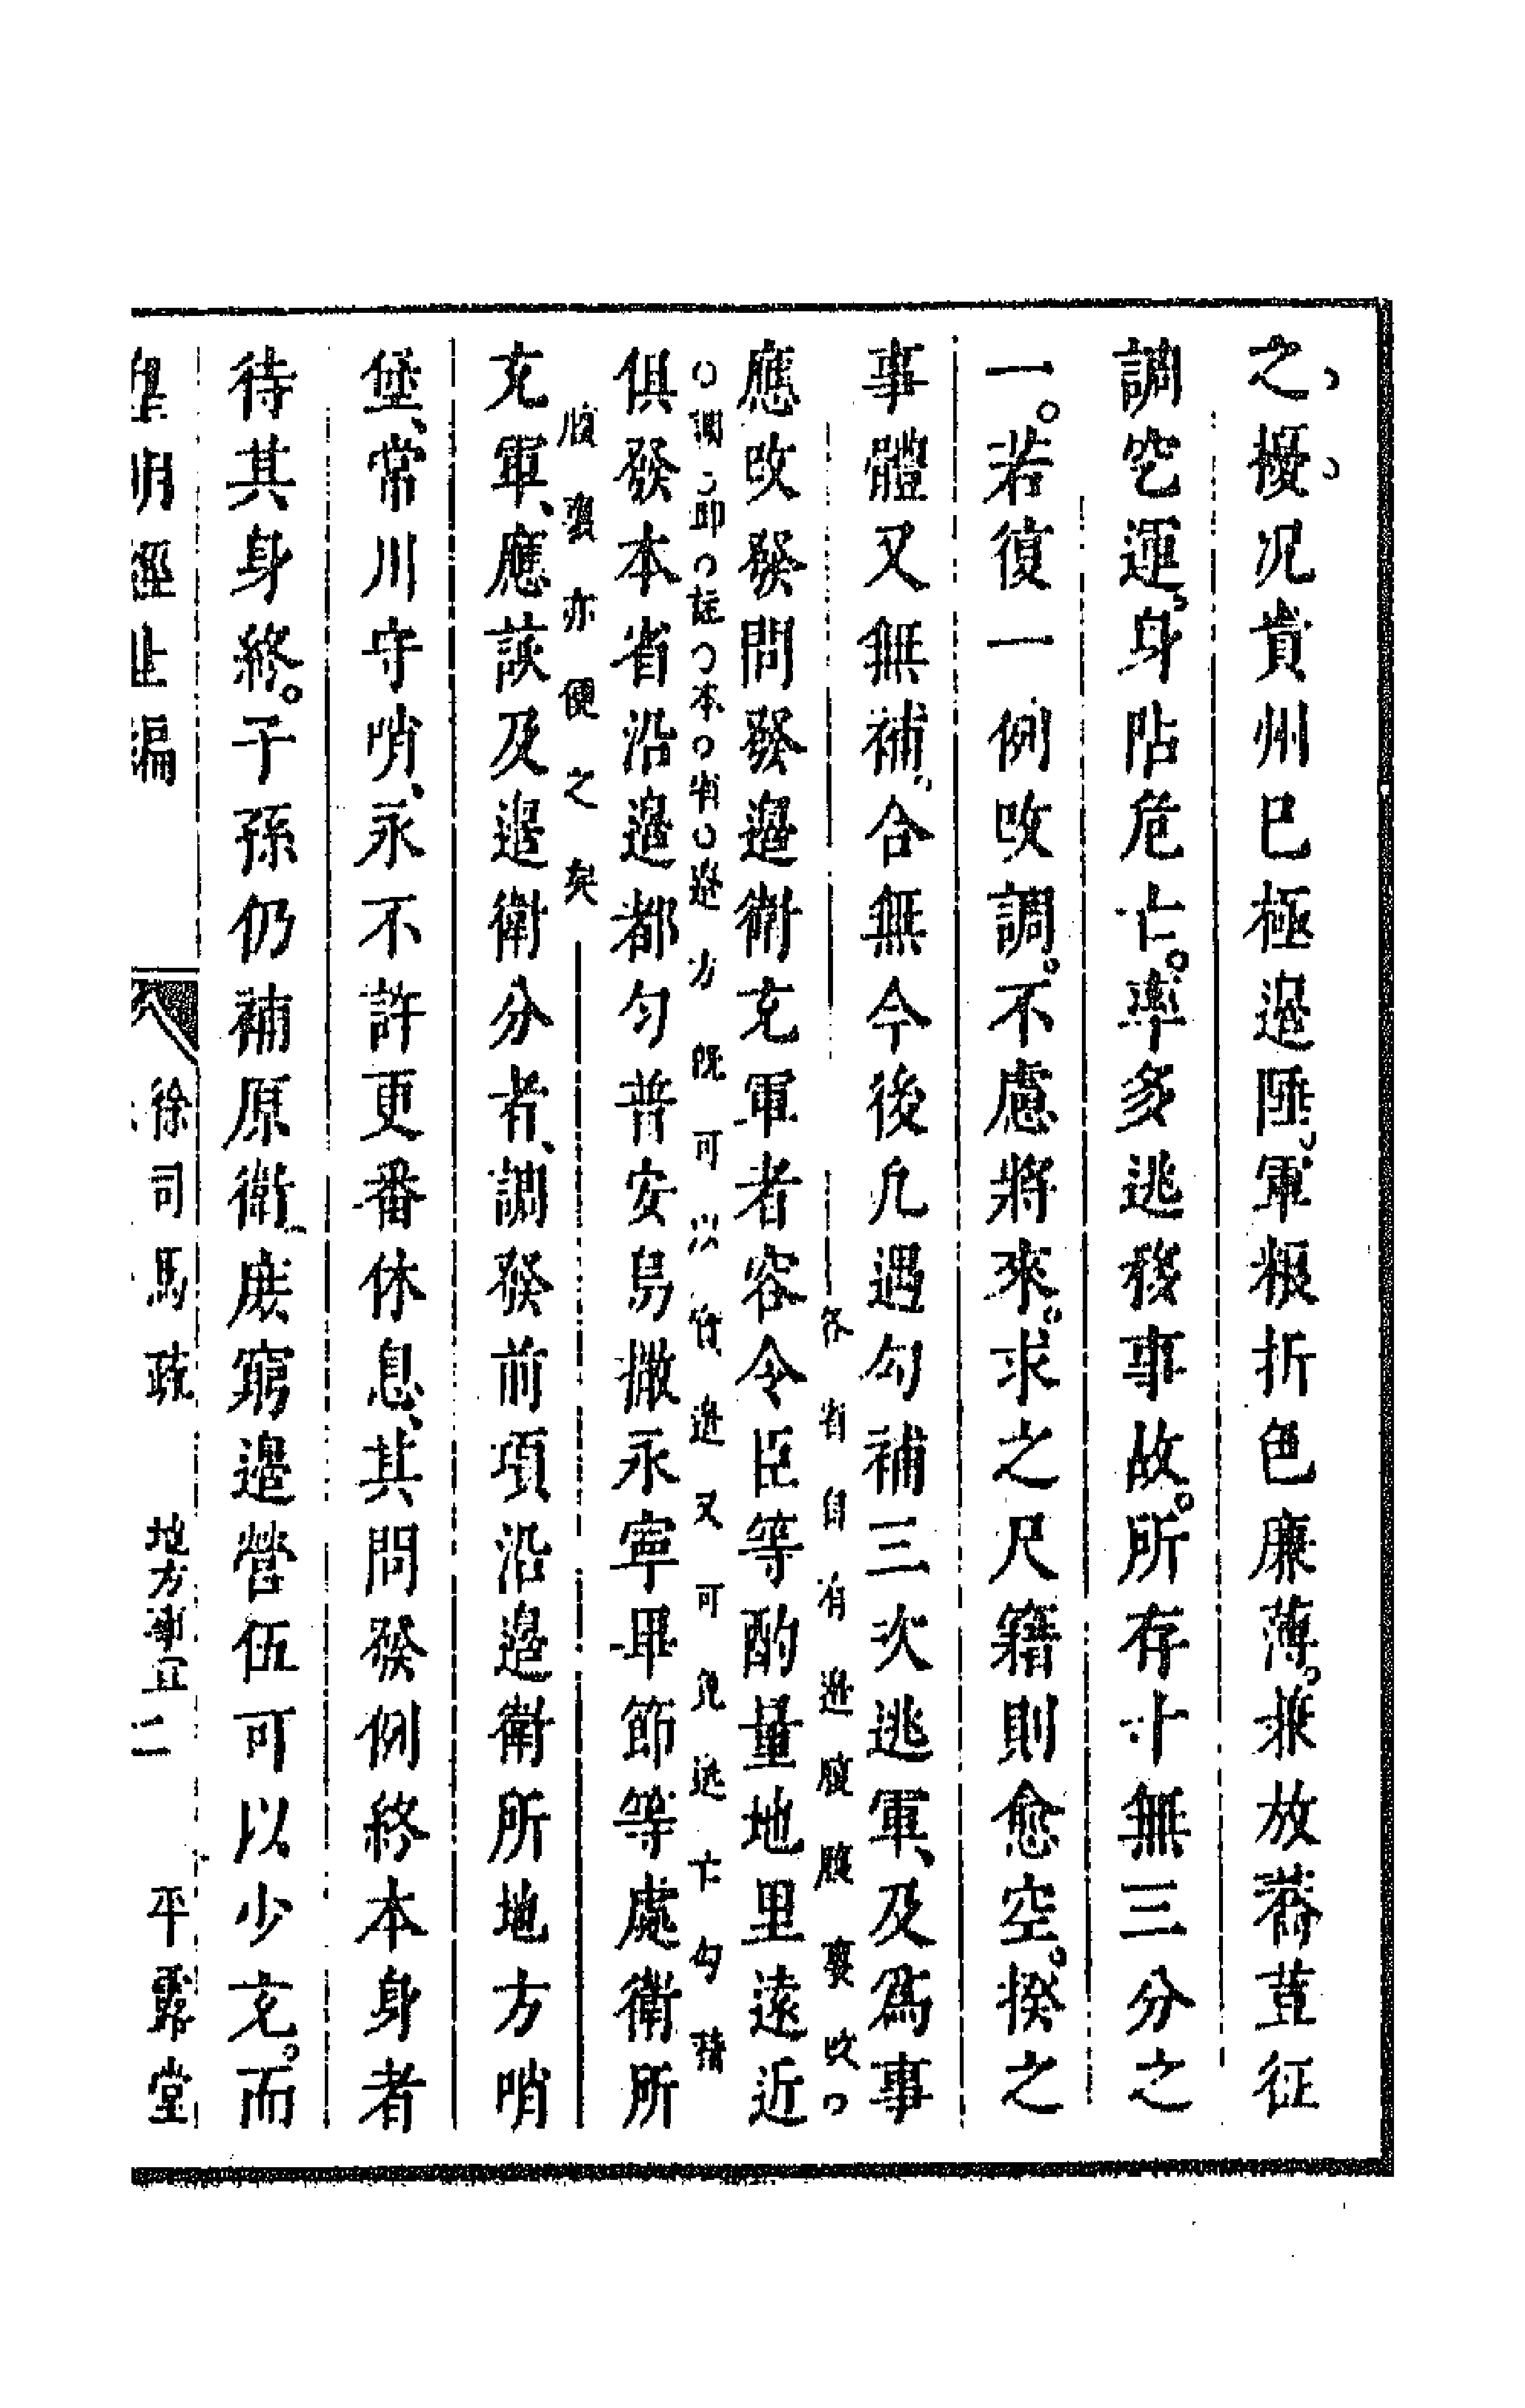 之擾况貴州已極邉陲軍粮折色廉薄兼放蕎荳征
調空運身阽危亡率多逃移事故所存十無三分之
一若復一例改調不慮將來求之尺籍則愈空揆之
事體又無補合無今後凡遇勾補三次逃軍及爲事
各省自有邉腹腹裏改
應改發問發邉衛充軍者容令臣等酌量地里遠近
調卽註本省邉方旣可以實邉又可免逃亡勾精
俱發本省沿邉都勻普安烏撒永寧畢節等處衛所
腹裏亦便之矣
充軍應該及邉衛分者調發前項沿邉衛所地方哨
堡常川守哨永不許更番休息其問發例終本身者
待其身終子孫仍補原衛庶窮邉營伍可以少充而
皇明經世編
徐司馬疏
地方事宜
二
平露堂